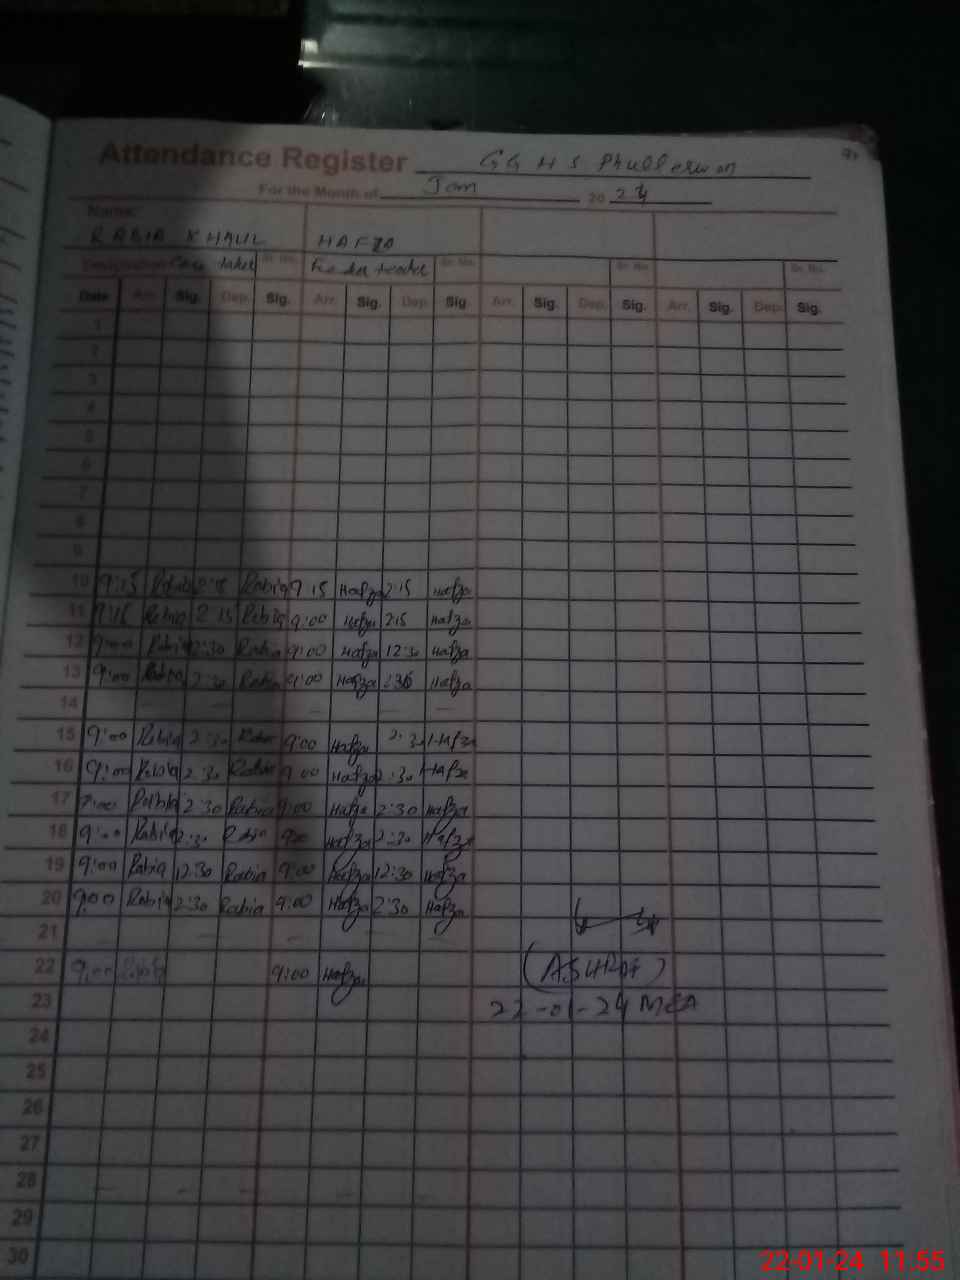 Attendance Register GGHS Phullerwan
For the Month of Jan 20 24
Name:
RABIA KHALIL HAFZA
Designation Care taker Sr. No. Sr. No. Sr. No. Sr. No.
Date Arr. Sig. Dep. Sig. Arr. Sig. Dep. Sig Arr. Sig. Dep. Sig. Arr. Sig. Dep. Sig.
1
2
3
4
5
6
7
8
9
10 9:15 Rabia 2:15 Rabia 9:15 Hafza 2:15 Hafza
11 9:15 Rabia 2:15 Rabia 9:00 Hafza 2:15 Hafza
12 9:00 Rabia 12:30 Rabia 9:00 Hafza 12:30 Hafza
13 9:00 Rabia 2:30 Rabia 9:00 Hafza 2:30 Hafza
14
15 9:00 Rabia 2:30 Rabia 9:00 Hafza 2:30 Hafza
16 9:00 Rabia 2:30 Rabia 9:00 Hafza 2:30 Hafza
17 9:00 Rabia 2:30 Rabia 9:00 Hafza 2:30 Hafza
18 9:00 Rabia 2:30 Rabia 9:00 Hafza 2:30 Hafza
19 9:00 Rabia 12:30 Rabia 9:00 Hafza 12:30 Hafza
20 9:00 Rabia 2:30 Rabia 9:00 Hafza 2:30 Hafza
21
22 9:00 Rabia 9:00 Hafza (ASHRAF)
23 22-01-24 MEA
24
25
26
27
28
29
30
22-01-24 11.55